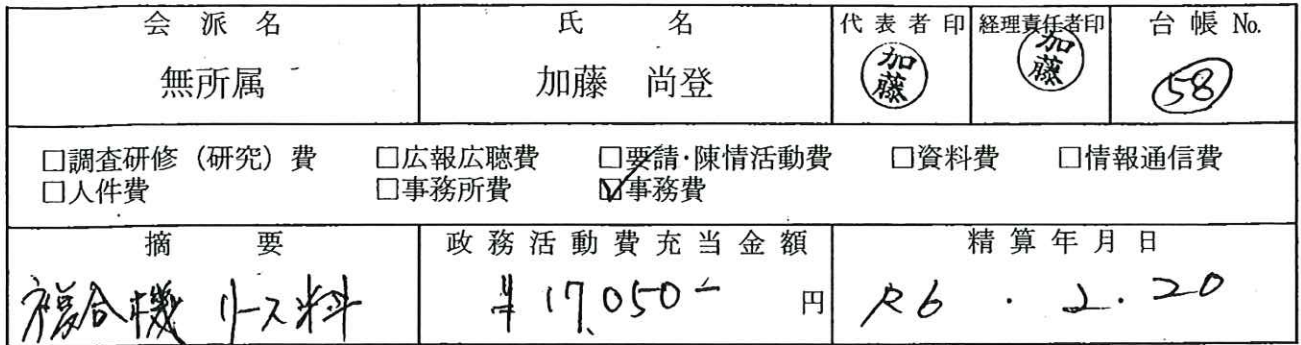 会派名 氏名 代表者印 経理責任者印 台帳 No.
無所属 加藤 尚登 加藤 加藤 58
□調査研修（研究）費 □広報広聴費 □要請・陳情活動費 □資料費 □情報通信費
□人件費 □事務所費 ☑事務費
摘要 政務活動費充当金額 精算年月日
複合機 リース料 ¥17,050- 円 R6.2.20